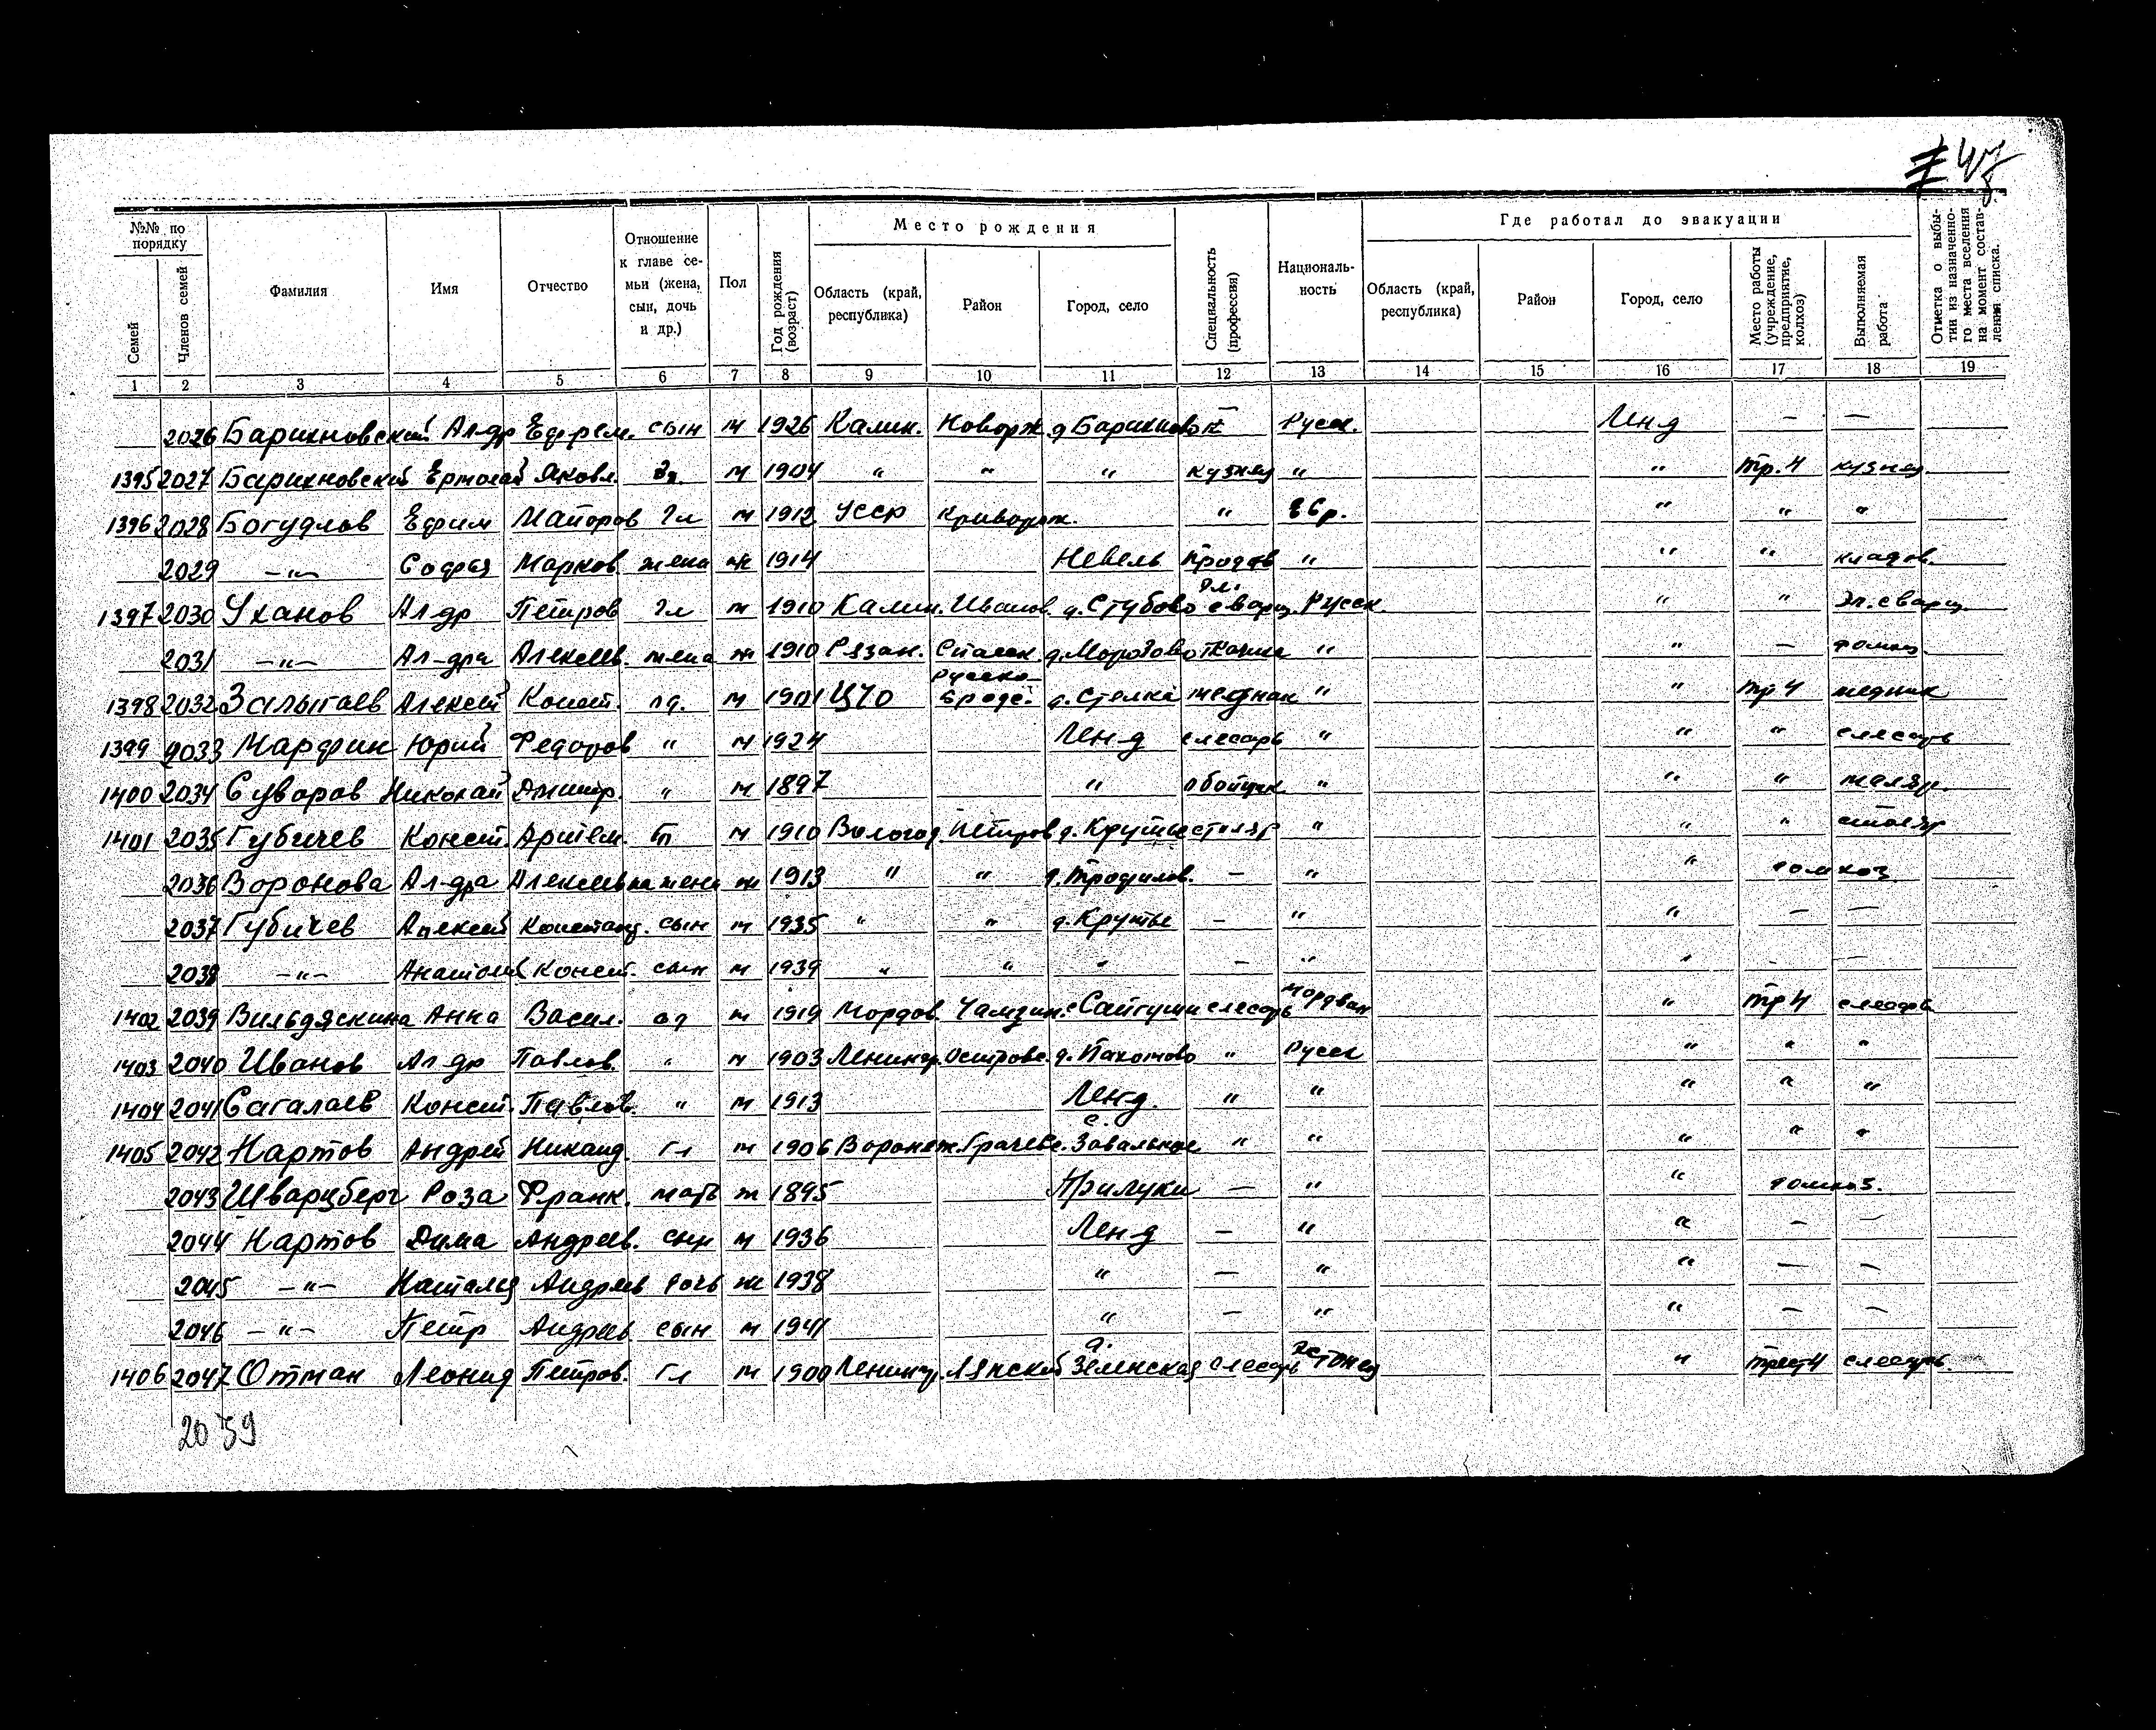 № 47
№№ по порядку
Семей
Членов семей
Фамилия
Имя
Отчество
Отношение к главе се-
мьи (жена,
сын, дочь
и др.)
Пол
Год рождения (возраст)
Место рождения
Область (край, республика)
Район
Город, село
Специальность (профессия)
Националь-
ность
Где работал до эвакуации
Область (край, республика)
Район
Город, село
Место работы (учреждение, предприятие, колхоз)
Выполняемая работа
Отметка о выбы-
тии из назначенно-
го места вселения
на момент состав-
ления списка.
1 2 3 4 5 6 7 8 9 10 11 12 13 14 15 16 17 18 19
2026 Барихновский Ал-др Ефрем. сын м 1926 Калин. Новорж. д Барихново — Русск. Лен-д — —
1395 2027 Барихновский Ермолай Яковл. м 1904 " " " кузнец " " тр. 4 кузнец
1396 2028 Богудлов Ефим Майоров гл м 1912 Усср Криворож. " Евр. " " "
2029 —"— Софья Марков. жена ж 1914 Невель продав " " " кладов.
1397 2030 Уханов Ал-др Петров гл м 1910 Калин. Иванов. д. Стубово эл. сварщ. Русск " " Эл. сварщ.
2031 —"— Ал-дра Алексеев. жена ж 1910 Рязан. Спасск. д. Морозово Ткачиха " " — домхоз
1398 2032 Залыгаев Алексей Конст. од. м 1901 ЦЧО Русско-Бродс. д. Стелка медник " " тр 4 медник
1399 2033 Марфин Юрий Федоров " м 1924 Лен-д слесарь " " " слесарь
1400 2034 Суворов Николай Дмитр. " м 1897 " обойщик " " " маляр.
1401 2035 Губичев Конст. Артем. гл м 1910 Вологод. Петров д. Крутые столяр " " " столяр
2036 Воронова Ал-дра Алексеевна жена ж 1913 " " д. Трофилов. — " " домхоз
2037 Губичев Алексей Констант. сын м 1935 " " д. Крутые — " " — —
2038 —"— Анатолий Конст. сын м 1939 " " " — " " — —
1402 2039 Вильдяскина Анна Васил. од ж 1919 Мордов. Чамзин. с Сайгуши слесарь мордван " тр 4 слесарь
1403 2040 Иванов Ал-др Павлов. " м 1903 Ленингр. Островс. д. Пахомово " Русск " " "
1404 2041 Сагалаев Конст. Павлов. " м 1913 Лен-д. " " " " "
1405 2042 Нартов Андрей Никанд. гл м 1906 Воронеж. Грачевс. с. Завальное " " " " "
2043 Шварцберг Роза Франк. мать ж 1895 Прилуки — " " домхоз.
2044 Нартов Дима Андреев. сын м 1936 Лен-д — " " — —
2045 —"— Наталья Андреев дочь ж 1938 " — " " — —
2046 —"— Петр Андреев. сын м 1941 " — " " — —
1406 2047 Отман Леонид Петров. гл м 1900 Ленингр. Лядский д. Зеленская слесарь эстонец " трест 4 слесарь.
2059